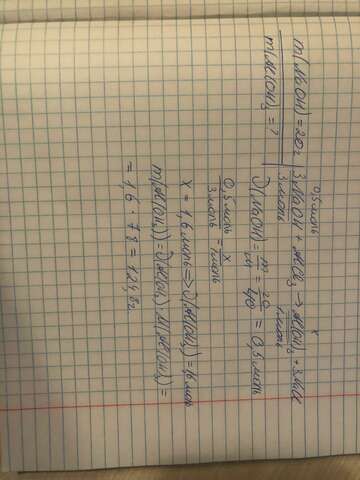 m(NaOH) = 20г
m(Al(OH)₃ = ?
0,5 моль x
3NaOH + AlCl₃ → Al(OH)₃ + 3NaCl
3 моль 1 моль
ϑ(NaOH) = m/M = 20/40 = 0,5 моль
0,5 моль/3 моль = x/1 моль
x = 1,6 моль => ϑ(Al(OH)₃) = 1,6 моль
m(Al(OH)₃) = ϑ(Al(OH)₃) · M(Al(OH)₃) =
= 1,6 · 78 = 124,8г